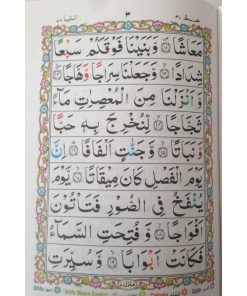 عمّ ٣٠ ٣ النبا ٧٨
مَعَاشًا ۝١١ وَّبَنَيْنَا فَوْقَكُمْ سَبْعًا
شِدَادًا ۝١٢ وَّجَعَلْنَا سِرَاجًا وَّهَّاجًا ۝١٣
وَّاَنْزَلْنَا مِنَ الْمُعْصِرٰتِ مَآءً
ثَجَّاجًا ۝١٤ لِّنُخْرِجَ بِهٖ حَبًّا
وَّنَبَاتًا ۝١٥ وَّجَنّٰتٍ اَلْفَافًا ۝١٦ اِنَّ
يَوْمَ الْفَصْلِ كَانَ مِيْقَاتًا ۝١٧ يَّوْمَ
يُنْفَخُ فِى الصُّوْرِ فَتَاْتُوْنَ
اَفْوَاجًا ۝١٨ وَّفُتِحَتِ السَّمَآءُ
فَكَانَتْ اَبْوَابًا ۝١٩ وَّسُيِّرَتِ